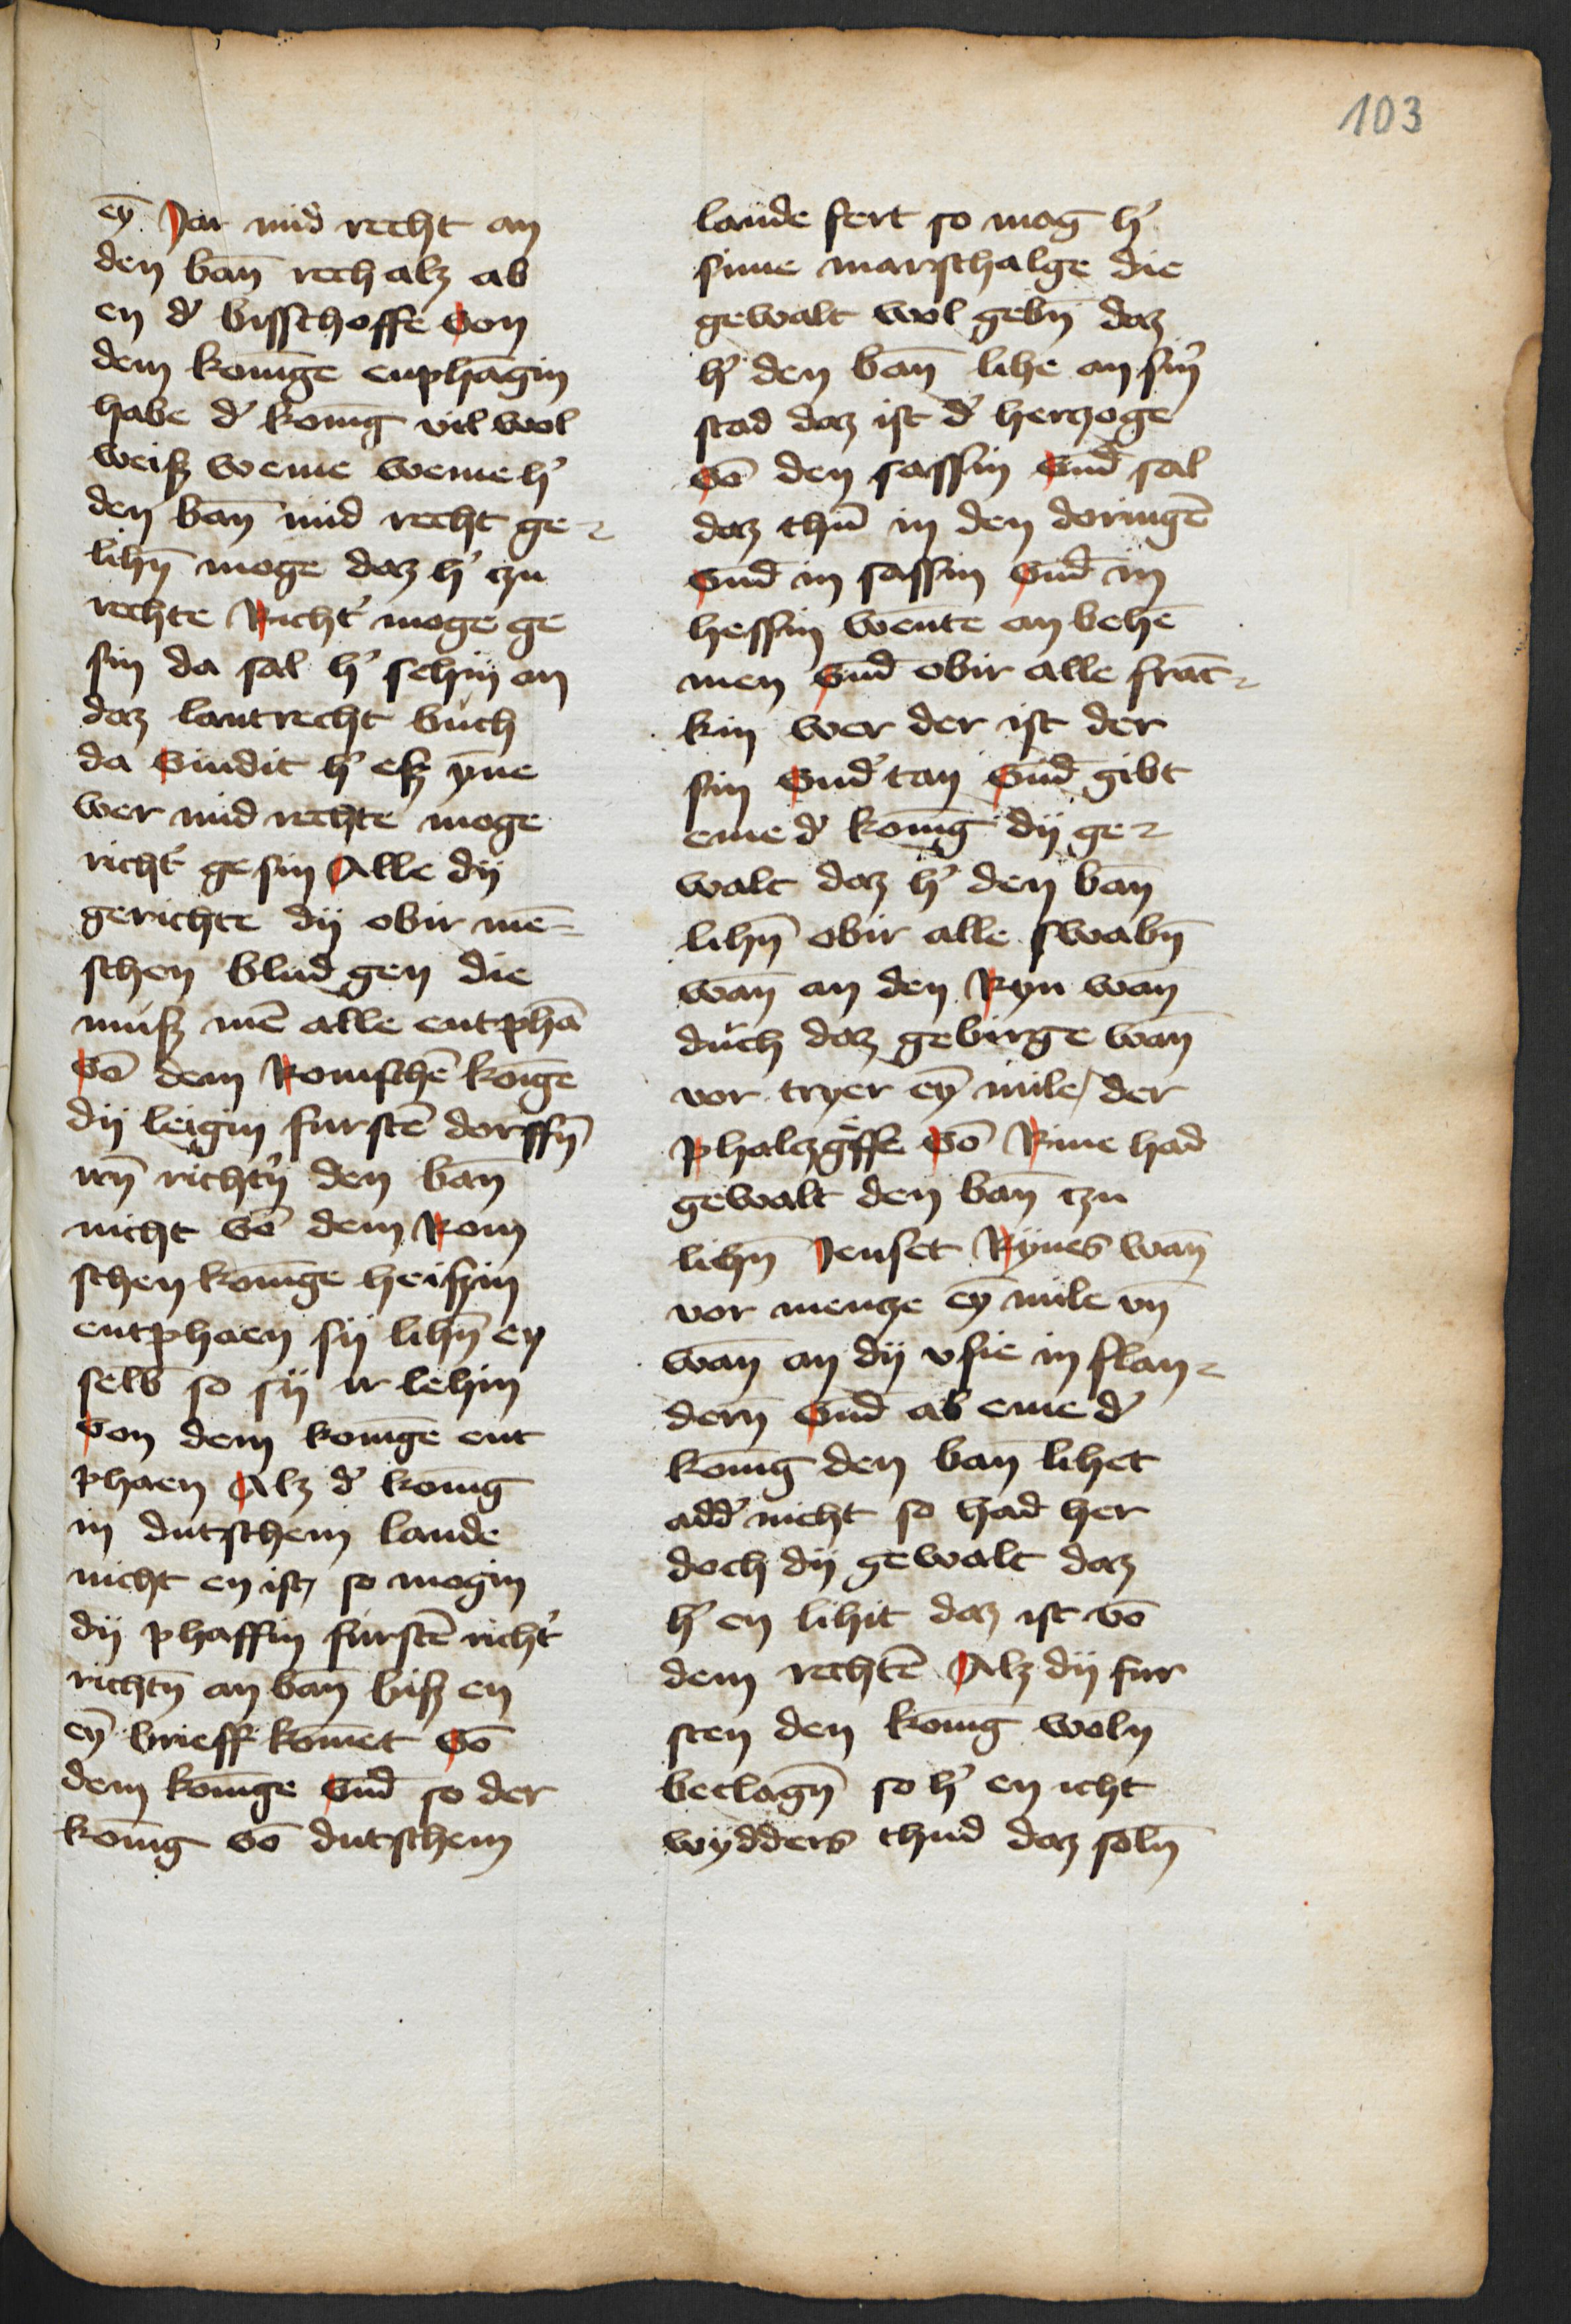 103
ey̅ Jar mid recht an
den ban̅ rech alz ab
en d' bisschoffe von
dem koni̅ge enphagin
habe d' konig̅ vil wol
weisz weme weme h'
den ban̅ mid recht ge-
lihn̅ moge daz h' czu
rechte Richt' moge ge
sin da sal h' sehin an
daz lantrecht buch
da vindit h' esz yn̅e
wer mid rechte moge
richt' gesin Alle dij
gerichte dij obir me̅-
schen blud gen die
musz me̅ alle entpha̅
vo̅ dem Romsche̅ koi̅ge
dij leigin furste̅ dorffn̅
irn̅ richt'n den ban̅
nicht vo̅ dem Rom
schen koni̅ge heiszin
entphaen sij lihn̅ en
selb̅ so sij ir lehin
von dem koni̅ge ent
phaen Alz d' konig̅
in dutschem lande
nicht en ist, so mogin
dij phaffin furste̅ richt'
richtn̅ an ban̅ bisz en
ey̅ brieff kom̅et vo̅
dem koni̅ge vnd̅ so der
konig̅ vo̅ dutschem
lande fert so mog̅ h'
sime marschalge die
gewalt wol gebn̅ daz
h' den ban̅ lihe an sin'
stad daz ist d' herczoge
vo̅ den sassin vnd̅ sal
daz thun̅ in den doringe̅
vnd̅ in sassin vnd̅ in
hessin wente an behe̅
men vnd̅ obir alle fran̅-
kin wer der ist der
sin vnd' tan vnd̅ gibt
eme d' konig̅ dij ge-
walt daz h' den ban̅
lihn̅ obir alle swabn̅
wan̅ an den Ryn wan̅
durch daz gebirge wan̅
vor tryer ey̅ mile, der
phalczg'ffe vo̅ Rine had
gewalt den ban̅ czu
lihn̅ Jenset Rynes wan̅
vor mencze ey̅ mile vn̅
wan̅ an dij vsie in flan-
dern̅ vnd̅ ab eme d'
konig̅ den ban̅ lihet
add' nicht so had her
doch dij gewalt daz
h' en lihit daz ist vo̅
dem rechte̅ Alz dij fur
sten den konig̅ woln̅
beclagn̅ so h' en icht
wydders thud daz soln̅